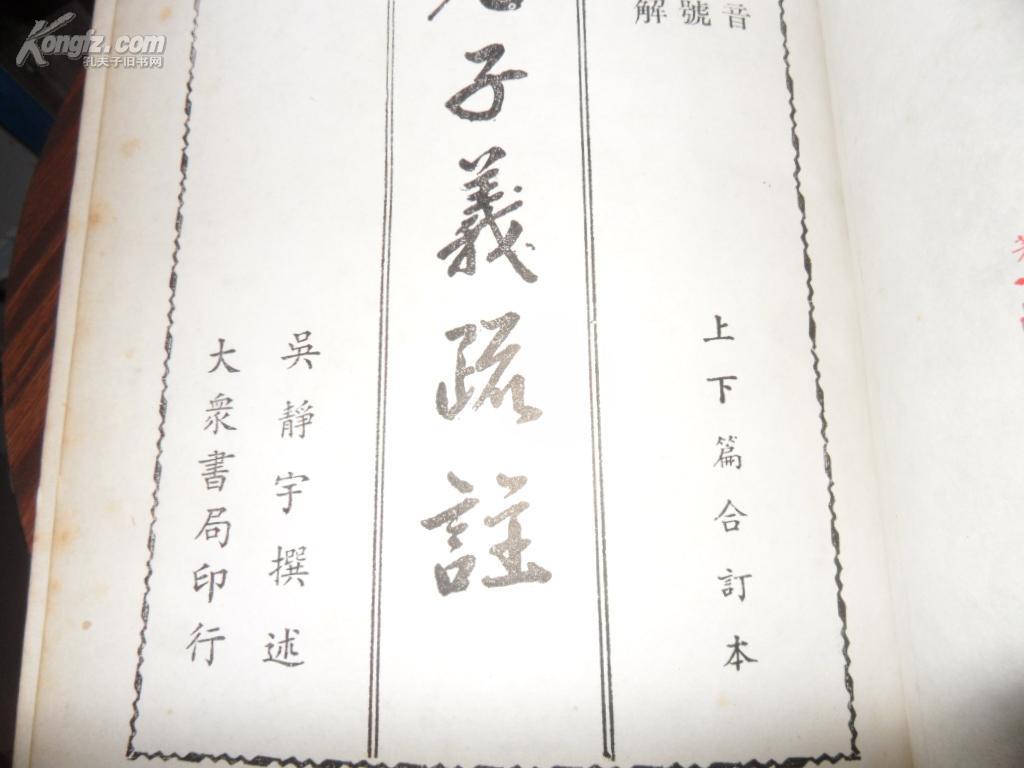 音
號
解
上下篇合訂本
子義疏註
吳靜宇撰述
大衆書局印行
Kongfz.com
孔夫子旧书网